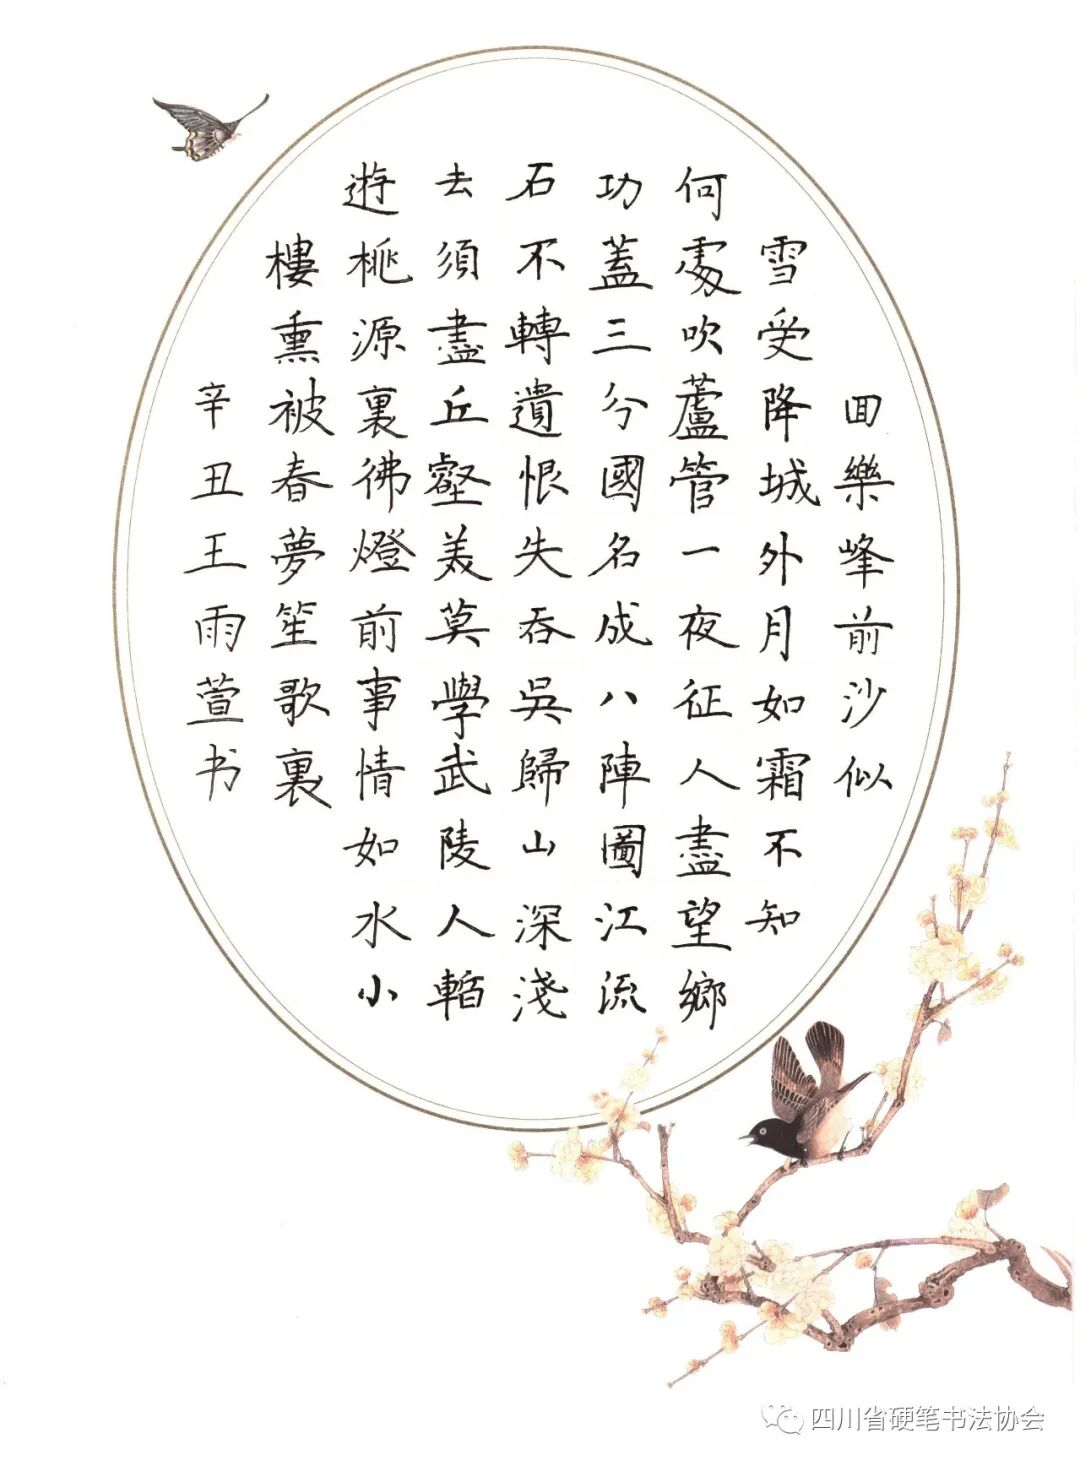 回樂峰前沙似
雪受降城外月如霜不知
何處吹蘆管一夜征人盡望鄉
功蓋三分國名成八陣圖江流
石不轉遺恨失吞吳歸山深淺
去須盡丘壑美莫學武陵人暫
遊桃源裏彿燈前事情如水小
樓熏被春夢笙歌裏
辛丑王雨萱书
四川省硬笔书法协会